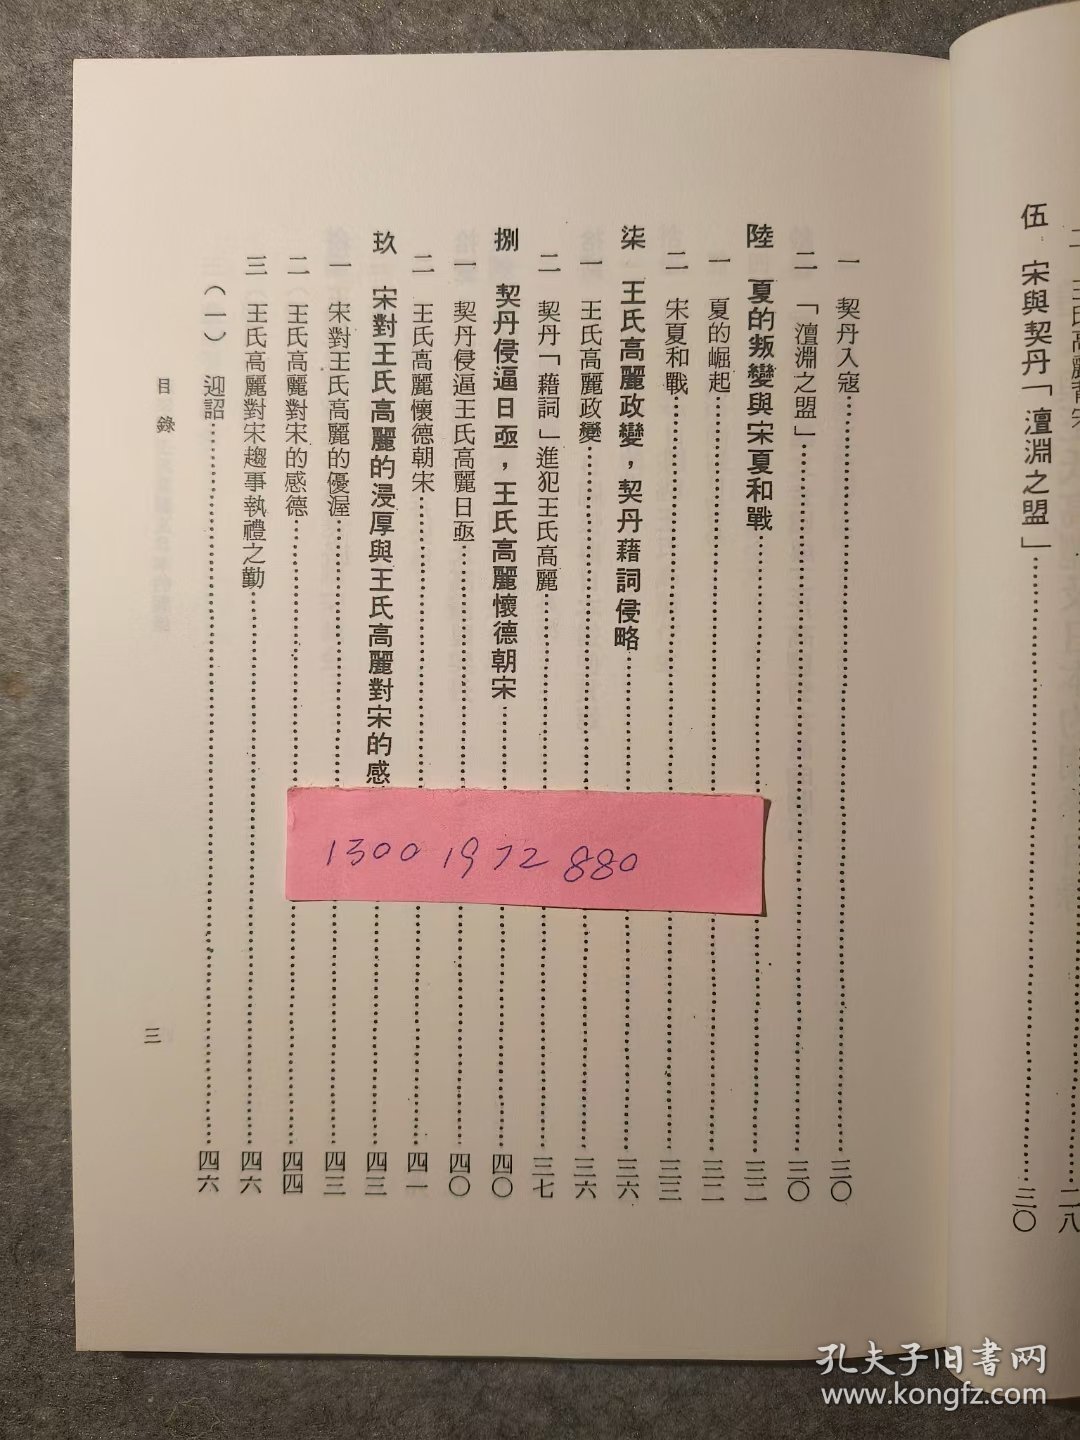 伍 宋與契丹「澶淵之盟」……三〇
一 契丹入寇……三〇
二 「澶淵之盟」……三〇
陸 夏的叛變與宋夏和戰……三二
一 夏的崛起……三二
二 宋夏和戰……三三
柒 王氏高麗政變，契丹藉詞侵略……三六
一 王氏高麗政變……三六
二 契丹「藉詞」進犯王氏高麗……三七
捌 契丹侵逼日亟，王氏高麗懷德朝宋……四〇
一 契丹侵逼王氏高麗日亟……四〇
二 王氏高麗懷德朝宋……四一
玖 宋對王氏高麗的浸厚與王氏高麗對宋的感……四三
一 宋對王氏高麗的優渥……四三
二 王氏高麗對宋的感德……四四
三 王氏高麗對宋趨事執禮之勤……四六
（一） 迎詔……四六
目 錄
三
二八
13001972880
孔夫子旧書网
www.kongfz.com